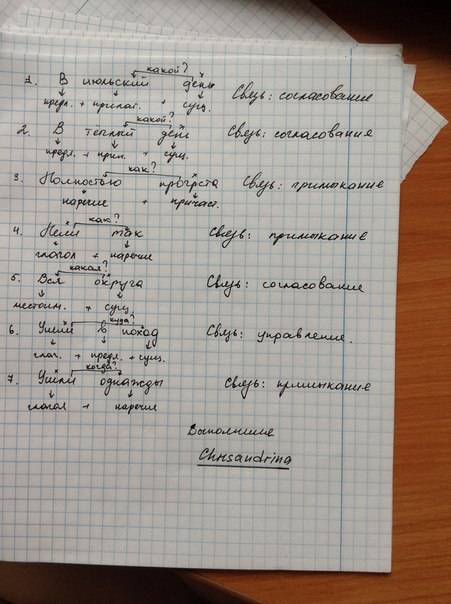 какой?
1. В июльский день Связь: согласование
предл. + прилаг. + сущ.
какой?
2. В теплый день Связь: согласование
предл. + прил. + сущ.
как?
3. Полностью прогрета Связь: примыкание
наречие + причаст.
как?
4. Пели так Связь: примыкание
глагол + наречие
какая?
5. Вся округа Связь: согласование
местоим. + сущ.
куда?
6. Ушли в поход Связь: управление.
глаг. + предл. + сущ.
когда?
7. Ушли однажды Связь: примыкание
глагол + наречие
Выполнила
Chrisandrina